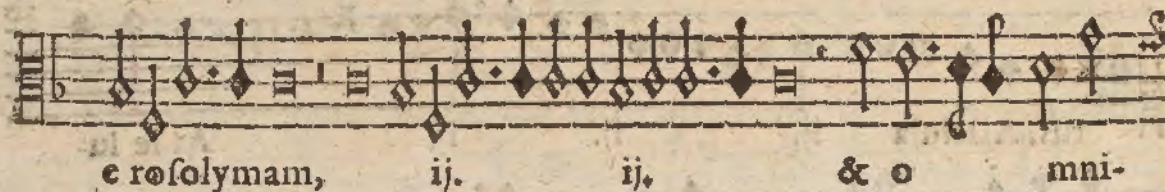 e roſolymam, ij. ij. & o mni-